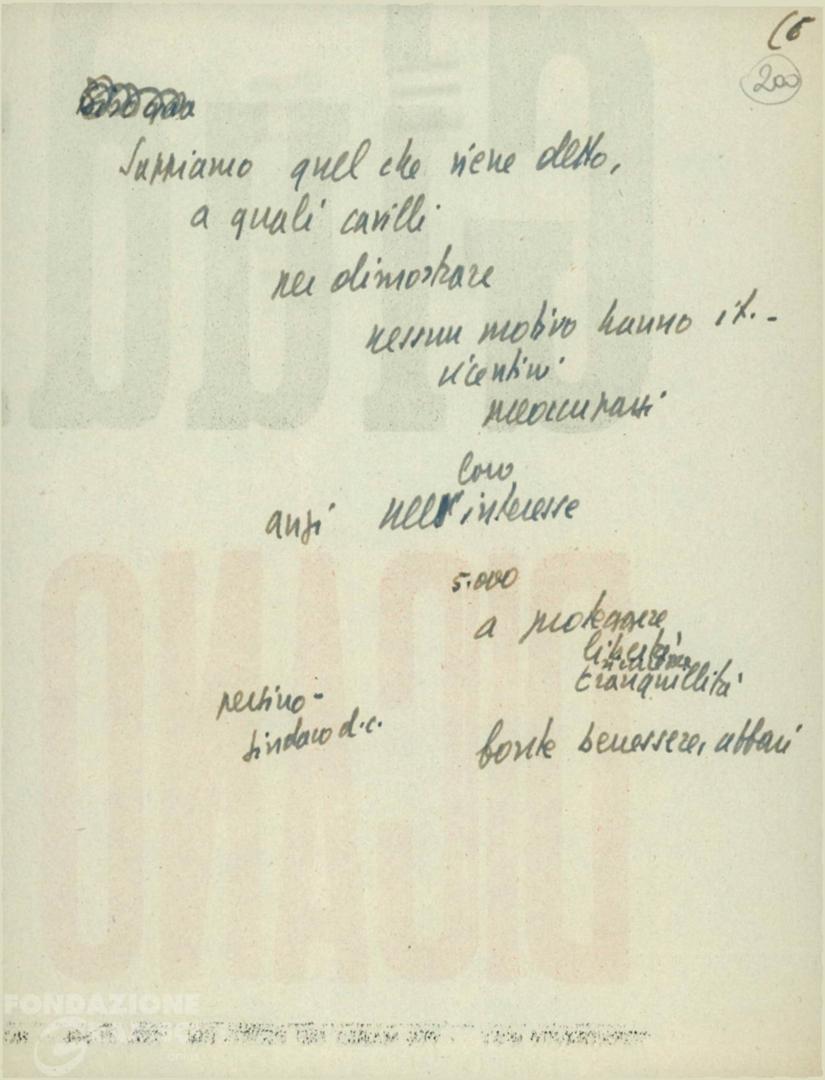 (6
200
Sappiamo quel che viene detto,
a quali cavilli
per dimostrare
nessun motivo hanno it.-
vicentini
preoccuparsi
loro
anzi nell' interesse
5.000
a proteggere
libertà
tranquillità
persino -
sindaco d.c.
fonte benessere, affari
FONDAZIONE